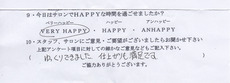 9・今日はサロンでHAPPYな時間を過ごせましたか？
ベリーハッピー ハッピー アンハッピー
VERY HAPPY ・ HAPPY ・ ANHAPPY
10・スタッフ、サロンにご意見・ご要望がございましたらお聞かせ下さい
上記アンケート項目に対しての細かなご意見などもご記入下さい。
ゆっくりできました 仕上がりも満足です。
ご協力ありがとうございます。